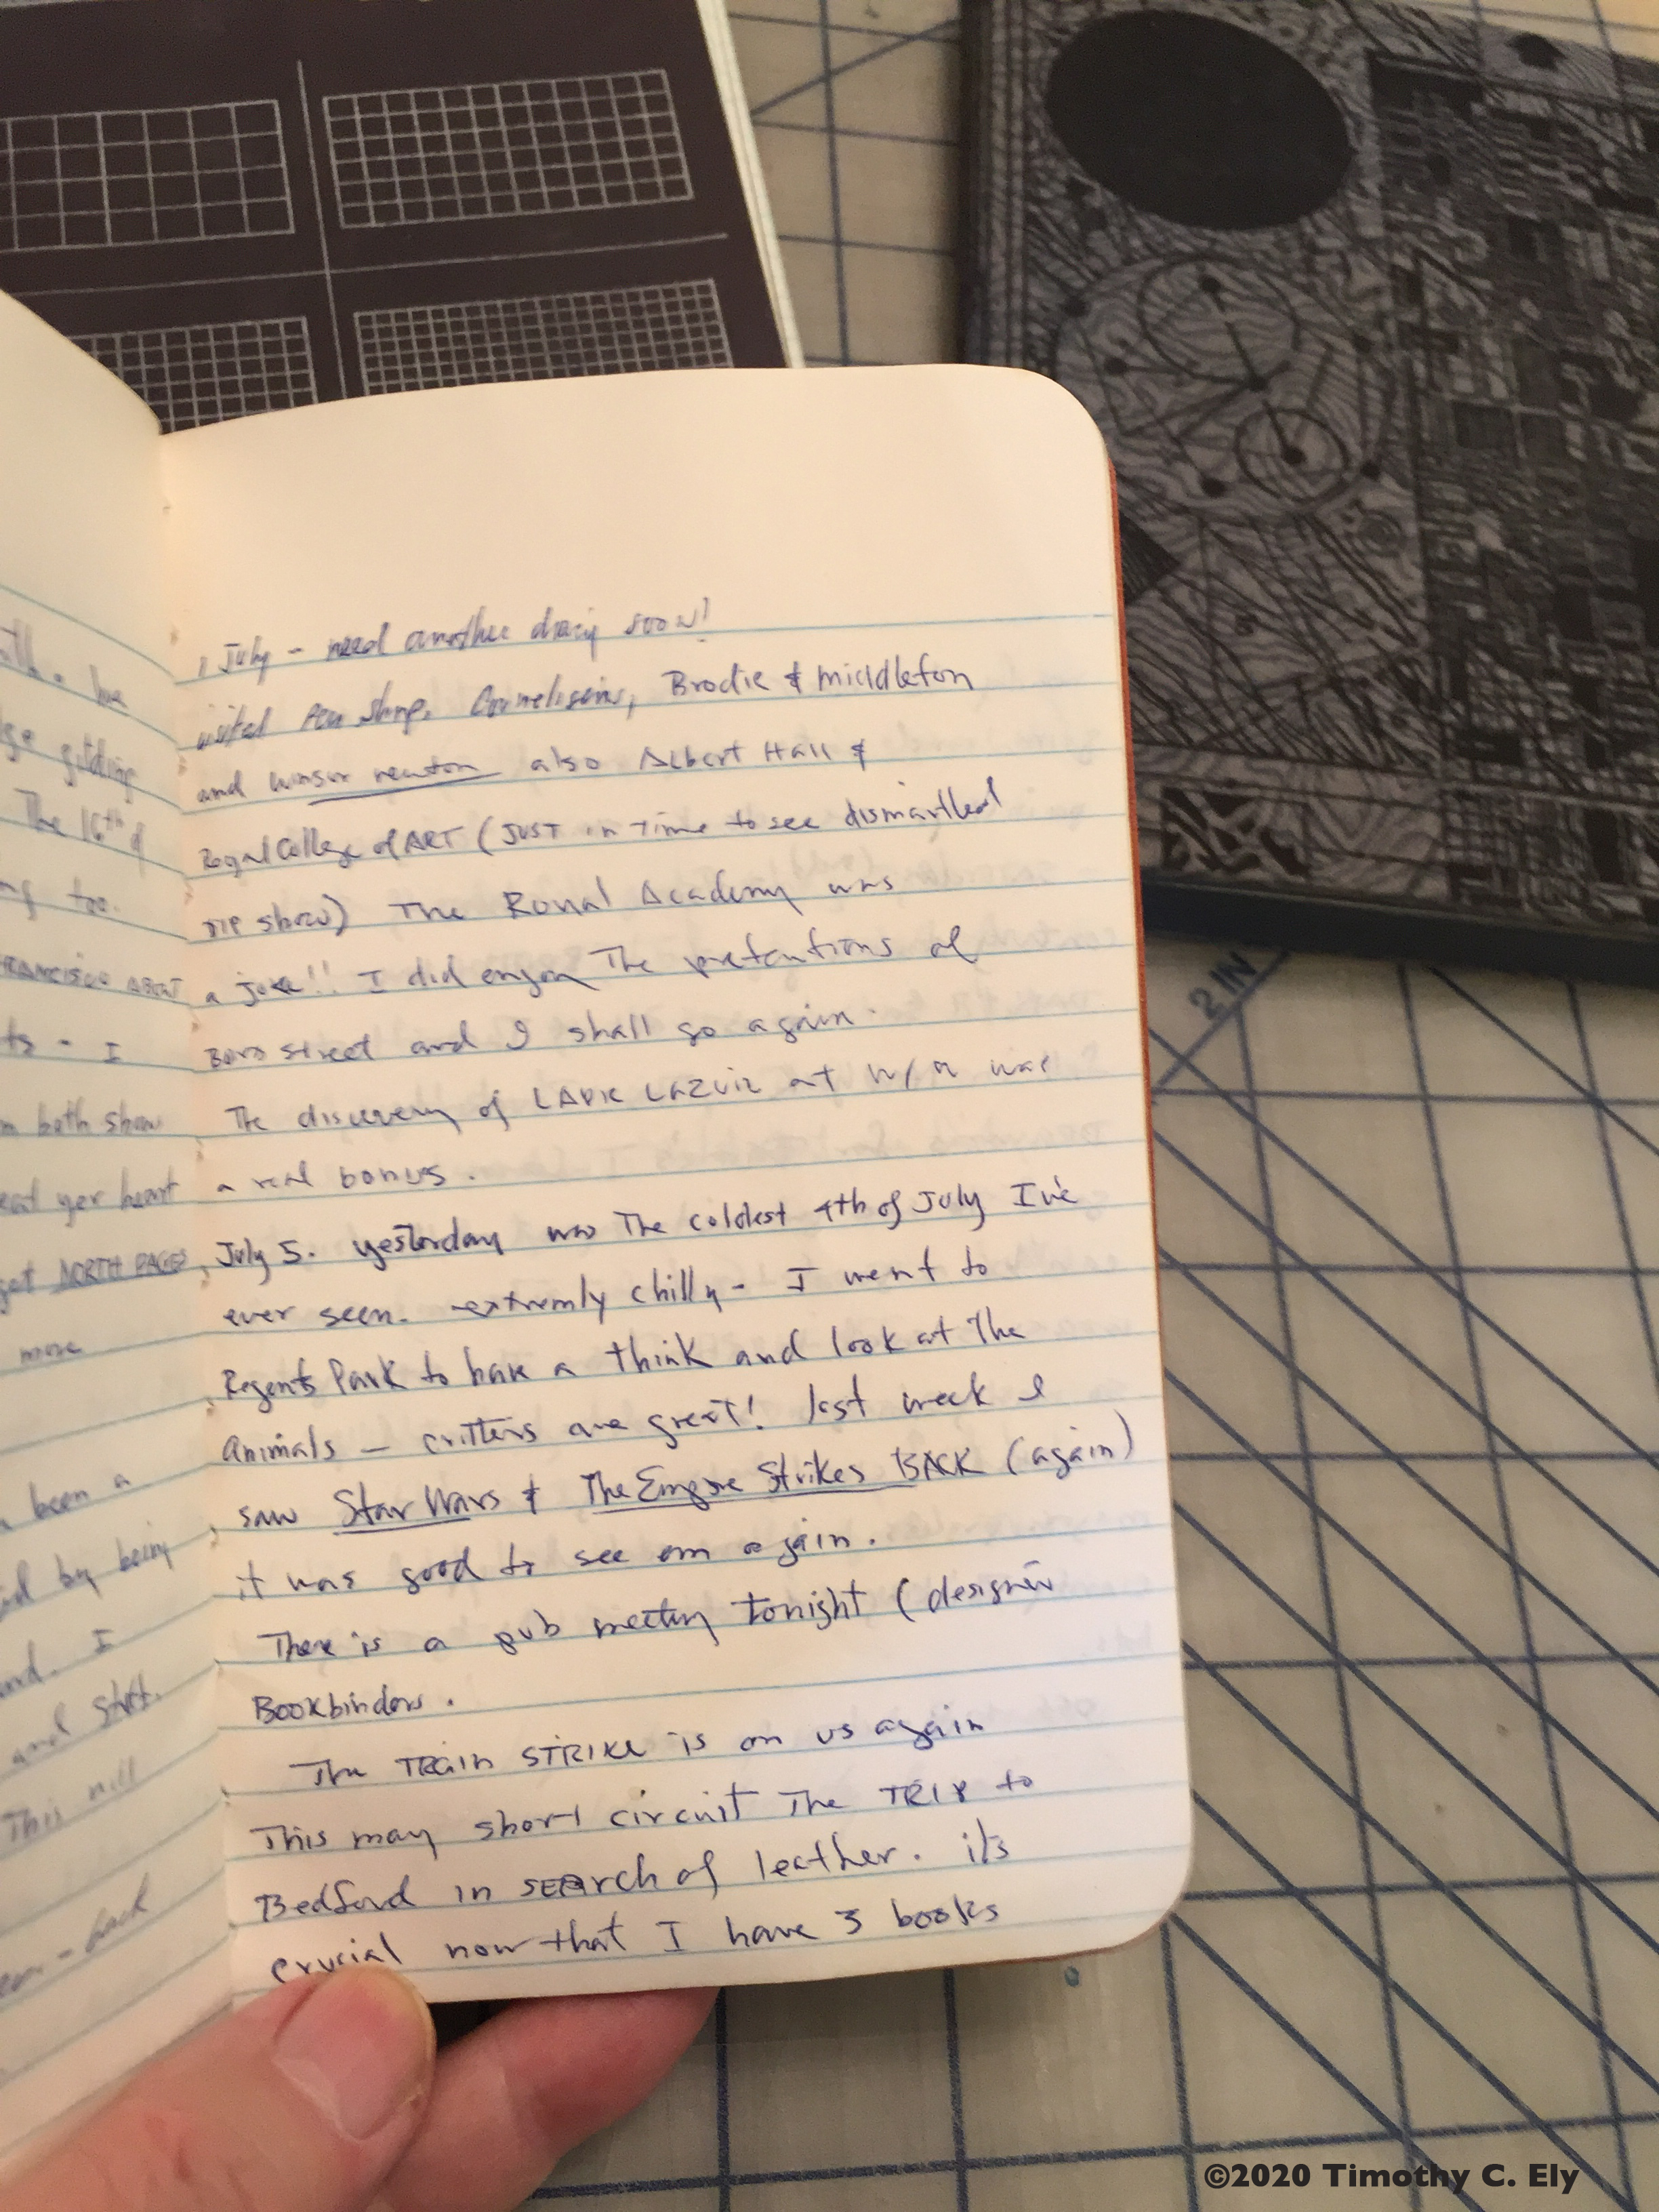 till. we
ge gilding
The 16th of
ng too.
FRANCISCO ABOUT
ts - I
m both show
eat yer heart
get NORTH PAGES
more
been a
id by being
and. I
and start.
This will
- back
1 July - need another diary soon!
visited Pen shop, Cornelissens, Brodie & middleton
and winsor newton also Albert Hall &
Royal College of ART (JUST in Time to see dismantled
DIP show) The Royal Academy was
a joke!! I did enjoy The pretentions of
Bond street and I shall go again.
The discovery of LAPIS LAZULI at W/N was
a real bonus.
July 5. yesterday was The coldest 4th of July I've
ever seen. extremly chilly - I went to
Regents Park to have a think and look at The
Animals - critters are great! last week I
saw Star Wars & The Empire Strikes BACK (again)
it was good to see em again.
There is a pub meeting tonight (designer
Bookbinders.
The TRAIN STRIKE is on us again
This may short circuit The TRIP to
Bedford in SEARCH of leather. it's
crucial now that I have 3 books
2 IN
©2020 Timothy C. Ely